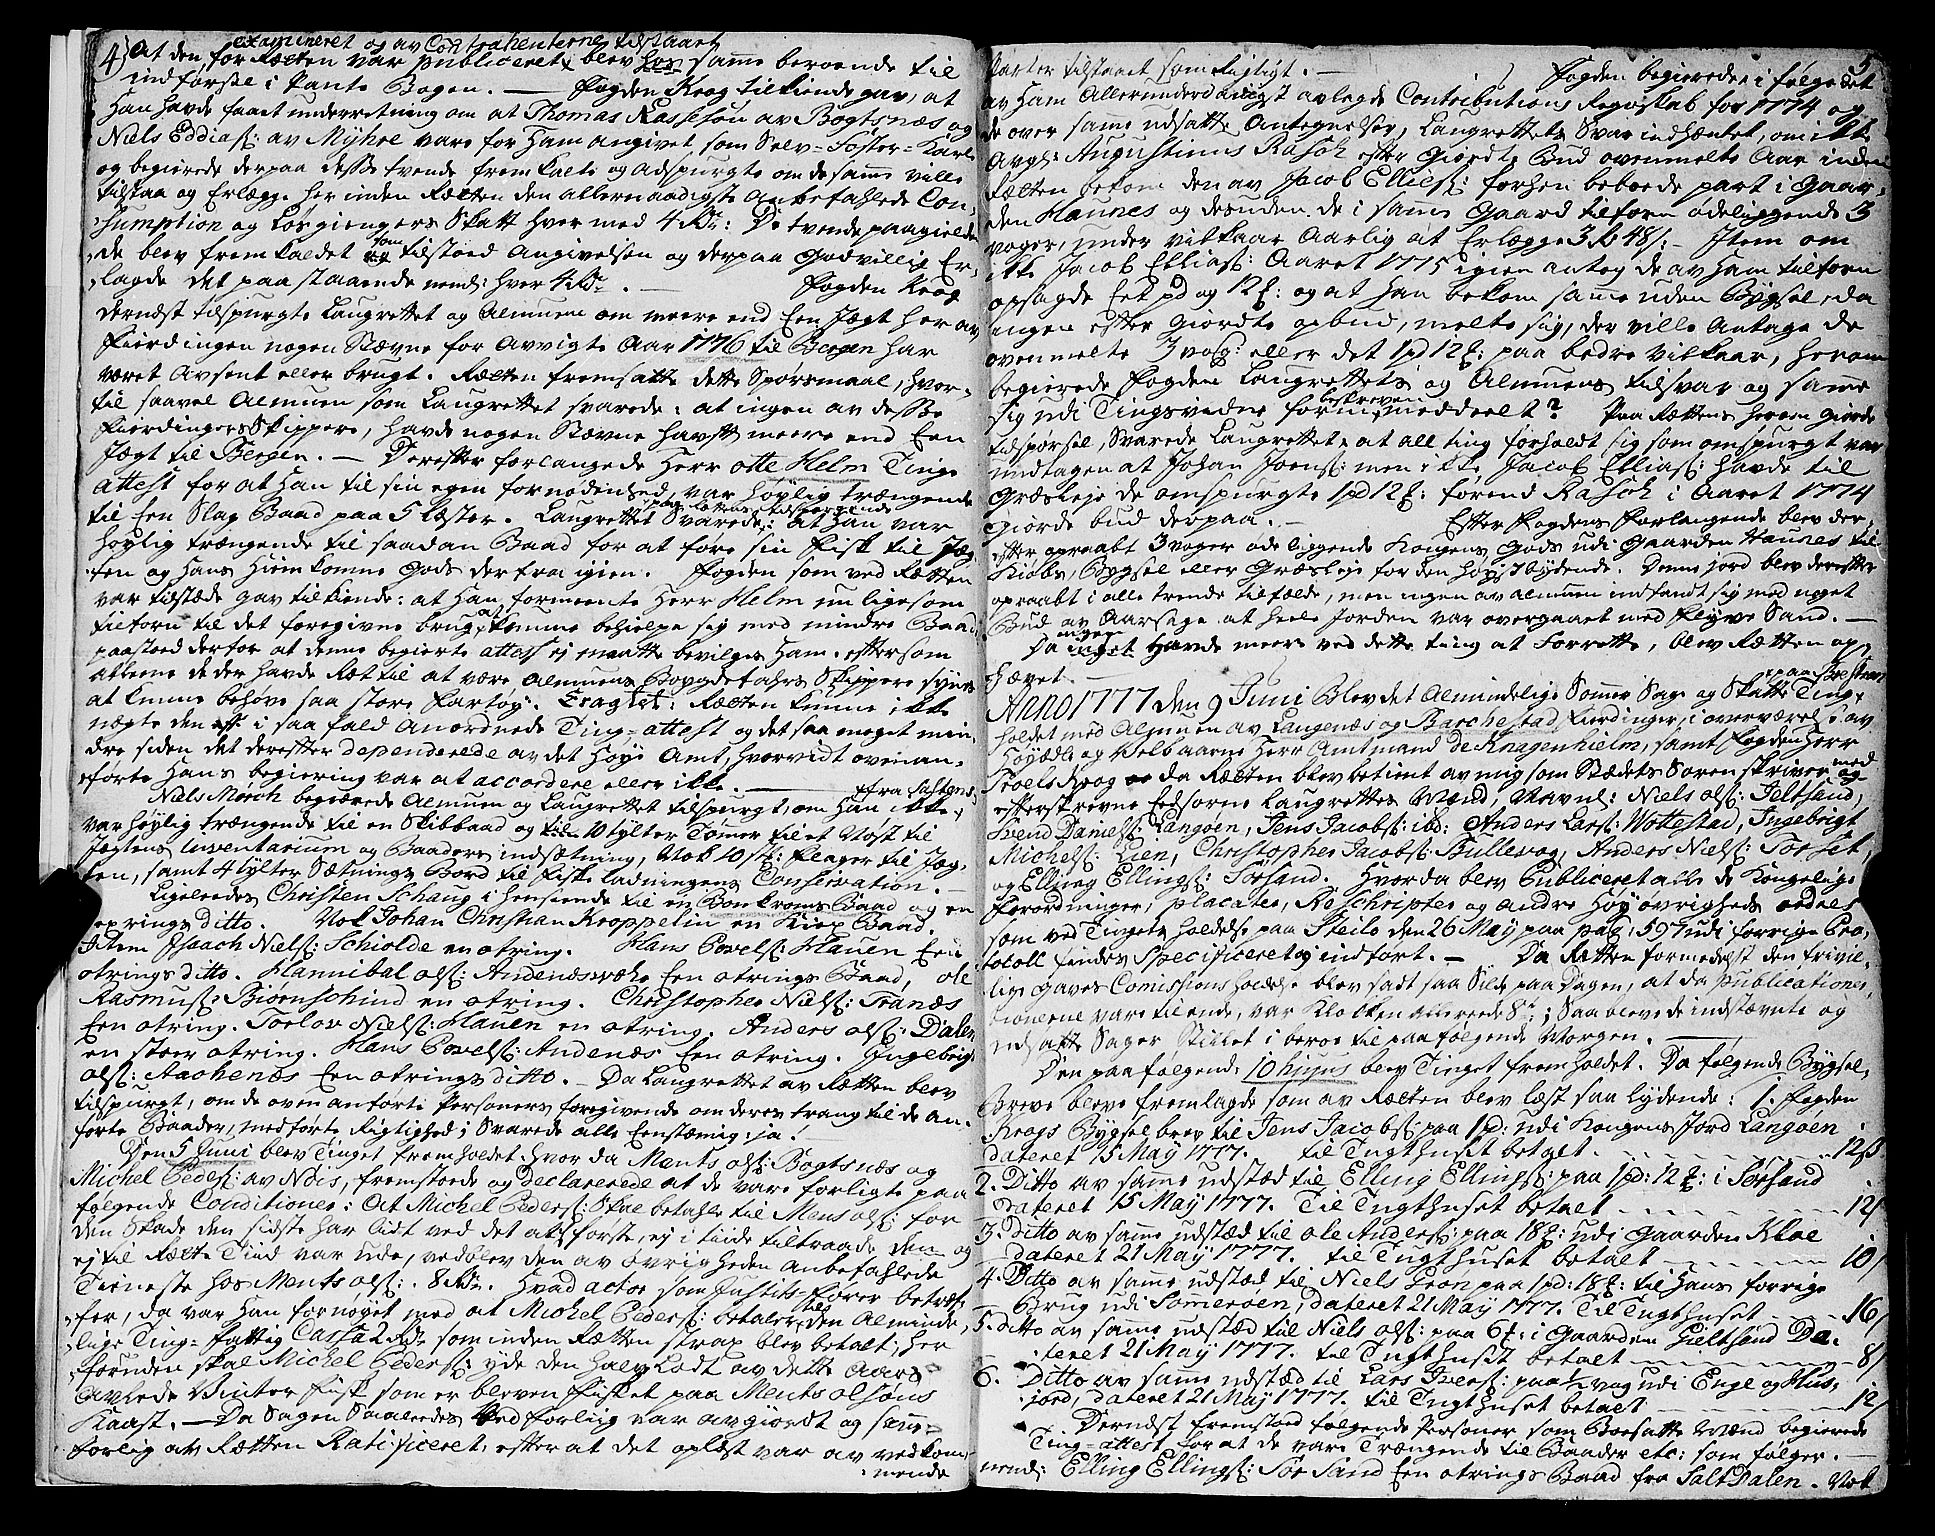 4)
examineret og av Contrahenterne tilstaaet
At den for Rætten var publiceret, blev hos samme beroende til
indførsel i Pante Bogen. — Fogden Krog tilkiende gav, at
Han havde faaet underretning om at Thomas Rassesøn av Bogtsnæs og
Niels Eddiass: av Myhre vare for Ham angivet som Selv-Foster-Karle
og begierede derpaa desse tvende fremkaldte og adspurgte om de samme ville
tilstaa og Erlægge her inden Rætten den allernaadigste anbefahlede Con-
sumption og Løsgiengers Skatt hver med 4 Rd: De tvende paagielden-
de blev fremkaldet som tilstoed Angivelsen og derpaa Godvillig Er-
lagde det paa staaende nemlig hver 4 Rd. — Fogden Krog
dernæst tilspurgte Laugrettet og Almuen om meere end Een Jægt her av
Fierdingen nogen Stævne for Avvigte Aar 1776 til Bergen har
været Avsent eller brugt. Rætten fremsatte dette Spørsmaal, hvor-
til saavel Almuen som Laugrettet svarede: at ingen av desse
Fierdingers Skippere, havde nogen Stævne havt meere end Een
Jægt til Bergen. — Derefter forlangede Herr Otte Helm Tings
attest for at Han til sin egen fornødenhed var høylig trængende
til Een Slag Baad paa 5 Læster. Laugrettet paa Rættens tilspørgende Svarede: at Han var
høylig trængende til saadan Baad for at føre sin Fisk til Jæg-
ten og Hans Hiemkomne Gods derfra igien. Fogden som ved Rætten
var tilstæde gav tilkiende: at Han formeente Herr Helm nu ligesom
tilforn til det foregivne brug at kunne behielpe sig med mindre Baad
paastoed derfor at denne begierte attest ej maatte bevilges Ham, eftersom
alleene de der havde Ræt til at være Almuens Boygdefahrs Skippere synes
at kunne behøve saa store Fartøy. Eragtet: Rætten kunne ikke
nægte den i saa fald Anordnede Ting-attest og det saa meget min-
dre siden det derefter dependerede av det Høye Amt, hvorvidt ovenan-
førte Hans begiering var at accordere eller ikke. —
Niels Mørch begiærede Almuen og Laugrettet tilspurgt, om Han ikke fra Saltens
var høylig trængende til en Skibbaad og 10 Tylter Tømer til et Nøst til
Jægtens Inventarium og Baaders indsætning, Nok 10 st: Plager til Jæg-
ten, samt 4 Tylter Sætnings Bord til Fiske ladningens Conservation. —
Ligeleedes Christen Schaug i henseende til en Bonkroms Baad og en
otrings ditto. Nok Johan Christian Kroppelin en Kiex Baad.
Item Isaach Niels: Schiolde en otring. Hans Povels: Hauen Een
otrings ditto. Hannibal ols: Andenæswæhr Een otrings Baad, ole
Rasmus: Biørnschind en otring. Christopher Niels: Tranæs
Een otring. Torlov Niels: Hauen en otring. Anders ols: Dalen
en stoer otring. Hans Povels: Andenæs Een otring. Ingebrigt
ols: Aachenæs Een otrings ditto. — Da Laugrettet av Rætten blev
tilspurgt, om de ovenanførte Personers foregivende om deres trang til de an-
førte Baader, medførte Rigtighed; Svarede alle Eenstæmig: ja! —
Den 5 Juni blev Tinget fremholdet hvor da Ments ols: Bogtsnæs og
Michel Peders: av Nois, fremstoede og declarerede at de vare forligte paa
følgende Conditioner: at Michel Peders: Skal betahle til Mens ols: for
den Skade den sidste har lidt ved det at første, ej i tiide tiltraade den og
ej til Rætte Tiid var ude, vedblev den av øvrigheden anbefahlede
Tieneste hos Ments ols: 8 Rd. Hvad actor som Justits-fører betref-
fer, da var Han fornøyet med at Michel Peders: betaler til den Alminde-
lige Ting-fattig Cassa 2 Rd. som inden Rætten strax blev betalt; her
foruden skal Michel Peders: yde den halv Lodt av dette Aars
avlede Vinter Fisk som er bleven fisket paa Ments olsøns
Kaast. — Da Sagen Saaleedes ved forliig var avgiordt og samme
forlig av Rætten Ratificeret, efter at det oplæst var av vedkom-
mende
5
Parter tilstaaet som rigtigt. — Fogden begierede i følge det
av Ham Allerunderdanigst avlagde Contributions Regnskab for 1774 og
de over samme udsatte Antegnelser, Laugrettets Svar indhæntet, om ikke
Avgl: Augustinus Rasch efter Giordte Bud ovenmelte Aar inden
Rætten bekom den av Jacob Ellies: forhen beboede part i Gaar-
den Haunes og desuden de i samme Gaard tilforn ødeliggende 3
voger, under vilkaar Aarlig at Erlægge 3 Rd 48 s: — Item om
ikke Jacob Ellias: Aaret 1775 igien antog de av Ham tilforn
opsagde Eet pd og 12 : og at Han bekom samme uden Bygsel, da
ingen efter Giordte opbud, melte sig, der ville Antage de
ovenmelte 3 vog: eller det 1 pd 12 : paa bedre vilkaar, herom
begierede Fogden Laugrettets og Almuens tilsvar og samme
sig udi Tingsvidne form beskreven meddeelt? Paa Rættens herom giorde
tilspørsel, Svarede Laugrettet, at all ting forholdt sig som omspurgt var
undtagen at Johan Joens: men ikke Jacob Ellias: havde til
Græsleje de omspurgte 1 pd 12 : førend Rasch i Aaret 1774
giorde bud derpaa. — Efter Fogdens Forlangende blev der-
efter opraabt 3 voger øde liggende Kongens Gods udi Gaarden Haunes til
Kiøbs, Bygsel eller Græsleje for den Høystbydende. Denne jord blev derefter
opraabt i alle trende tilfælde, men ingen av almuen indfandt sig med noget
Bud av Aarsage at heele Jorden var overgaaet med Flyve Sand. —
Da ingen havde meere ved dette ting at forrette, blev Rætten op-
hævet. —
Anno 1777 den 9 Juni Blev det Almindelige Sommer Sage og Skatte Ting
holdet med Almuen av Langenæs og Barchestad Fierdinger, i overværelse av
Høyædle og Velbaarne Herr Amtmand de Knagenhielm, samt Fogden Herr
Troels Krog da Rætten blev betient av mig som Stædets Sorenskriver med
efterskrevne Eedsorne Laugrettes Mænd, Navnl: Niels ols: Jeltsand,
Svend Daniels: Langøen, Jens Jacobs: ibd: Anders Lars: Wottestad, Ingebrigt
Michels: Lien, Christopher Jacobs: Bullevog, Anders Niels: Torset,
og Elling Ellings: Sørsand. Hvor da blev Publiceret alle de Kongelige
Forordninger, placater, Reschripter og andre Høy øvrigheds ordres
som ved Tingets holdelse paa Steilo den 26 May paa pag: 597 udi forrige Pro-
tocoll findes Specificeret og indført. — Da Rætten formedelst den frivil-
lig gaves Comissions holdelse blev sadt saa Silde paa Dagen, at da publicatio-
nerne vare til ende, var Klokken allereede 8te, Saa blev de indstævnte og
udsatte Sager Stillet i beroe til paafølgende Morgen. —
Den paa følgende 10 hujus blev Tinget fremholdet. Da følgende Bygsel-
Breve bleve fremlagde som av Rætten blev læst saa lydende: 1. Fogden
Krogs Bygsel brev til Jens Jacobs: paa 1 pd: udi Kongens Jord Langøen
dateret 15 May 1777. til Tugthuset betalt. — 12 s
2. Ditto av samme udstæd til Elling Ellings: paa 1 pd: 12 : i Sørsand
dateret 15 May 1777. Til Tugthuset betalt — 12 s
3. Ditto av samme udstæd til ole Anders: paa 18 : udi gaarden Kloe
dateret 21 May 1777. til Tugthuset betalt — 10 s
4. Ditto av samme udstæd til Niels Tron paa 1 pd: 18 : til Hans forrige
Brug udi Sommerøen, dateret 21 May 1777. Til Tugthuset — 16 s
5. ditto av samme udstæd til Niels ols: paa 6 : i Gaarden Gieltsand Da-
teret 21 May 1777. til Tugthuset betalt — 8 s
6. Ditto av samme udstæd til Lars Ivers: paa 1 vog udi Enge og Hus-
jord, dateret 21 May 1777. til Tugthuset betalt — 12 s
Dernæst fremstoed følgende Personer som Boesatte Mænd begierede
Ting-attest for at de vare Trængende til Baader etc: som følger. —
nemd: Elling Ellings: Sør Sand Een otrings Baad fra Saltdalen. Nok